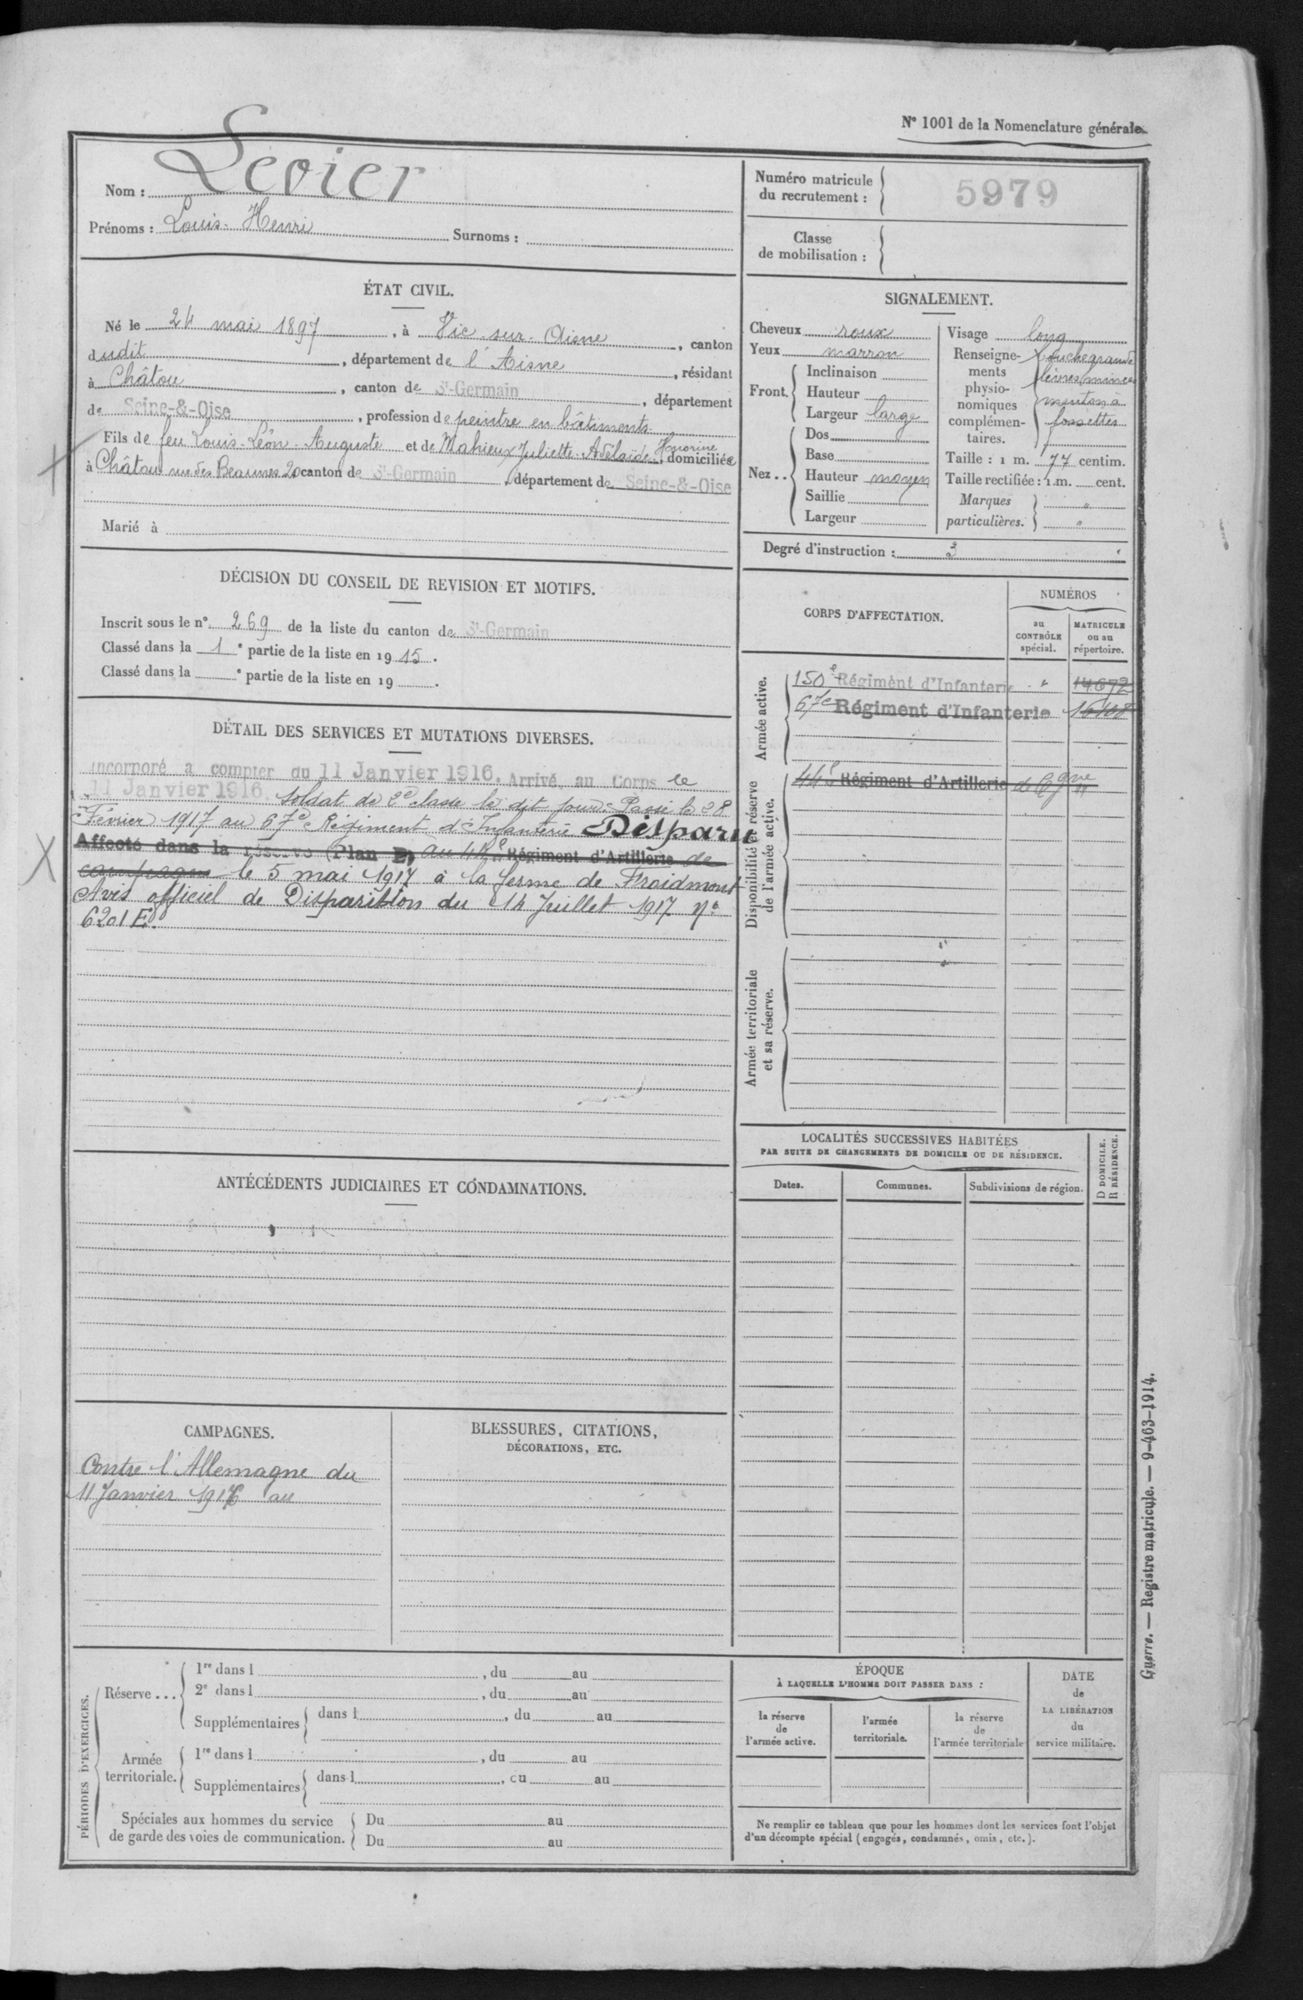 N° 1001 de la Nomenclature générale.
Nom : Levier
Prénoms : Louis-Henri Surnoms :
Numéro matricule du recrutement : 5979
Classe de mobilisation :
ÉTAT CIVIL.
Né le 24 mai 1897, à Vic-sur-Aisne, canton
dudit, département de l'Aisne, résidant
à Châtou, canton de St-Germain, département
de Seine-&-Oise, profession de peintre en bâtiments
Fils de feu Louis-Léon-Auguste et de Mahieux Juliette-Adélaïde Honorine domiciliée
à Châtou rue des Beaunes 20 canton de St-Germain, département de Seine-&-Oise
Marié à
SIGNALEMENT.
Cheveux roux
Yeux marron
Front.
Inclinaison
Hauteur
Largeur large
Nez . .
Dos
Base
Hauteur moyen
Saillie
Largeur
Visage long
Renseignements physionomiques complémentaires.
bouche grande
lèvres minces
menton à
fossettes
Taille : 1 m. 77 centim.
Taille rectifiée : 1 m. cent.
Marques particulières. "
"
Degré d'instruction : 3
DÉCISION DU CONSEIL DE REVISION ET MOTIFS.
Inscrit sous le n° 269 de la liste du canton de St-Germain
Classé dans la 1e partie de la liste en 1915.
Classé dans la e partie de la liste en 19 .
DÉTAIL DES SERVICES ET MUTATIONS DIVERSES.
Incorporé à compter du 11 Janvier 1916. Arrivé au Corps le
11 Janvier 1916. Soldat de 2e classe le dit jour. Passé le 28
Février 1917 au 67e Régiment d'Infanterie Disparu
Affecté dans la réserve (Plan ) au 44e Régiment d'Artillerie de
campagne le 5 mai 1917 à la ferme de Froidmont
Avis officiel de Disparition du 14 Juillet 1917 N°
6201 E.
CORPS D'AFFECTATION.
NUMÉROS
au CONTRÔLE spécial.
MATRICULE ou au répertoire.
Armée active.
150e Régiment d'Infanterie " 14672
67e Régiment d'Infanterie
Disponibilité et réserve de l'armée active.
44e Régiment d'Artillerie de Cgne
Armée territoriale et sa réserve.
LOCALITÉS SUCCESSIVES HABITÉES
PAR SUITE DE CHANGEMENTS DE DOMICILE OU DE RÉSIDENCE.
Dates.
Communes.
Subdivisions de région.
D DOMICILE.
R RÉSIDENCE.
ANTÉCÉDENTS JUDICIAIRES ET CONDAMNATIONS.
CAMPAGNES.
Contre l'Allemagne du
11 Janvier 1916 au
BLESSURES, CITATIONS,
DÉCORATIONS, ETC.
PÉRIODES D'EXERCICES.
Réserve . . .
1re dans l , du au
2e dans l , du au
Supplémentaires dans l , du au
Armée territoriale.
1re dans l , du au
Supplémentaires dans l , du au
Spéciales aux hommes du service
de garde des voies de communication.
Du au
Du au
ÉPOQUE
À LAQUELLE L'HOMME DOIT PASSER DANS :
la réserve de l'armée active.
l'armée territoriale.
la réserve de l'armée territoriale
DATE de LA LIBÉRATION du service militaire.
Ne remplir ce tableau que pour les hommes dont les services font l'objet
d'un décompte spécial (engagés, condamnés, omis, etc.).
Guerre. — Registre matricule. — 9-463-1914.